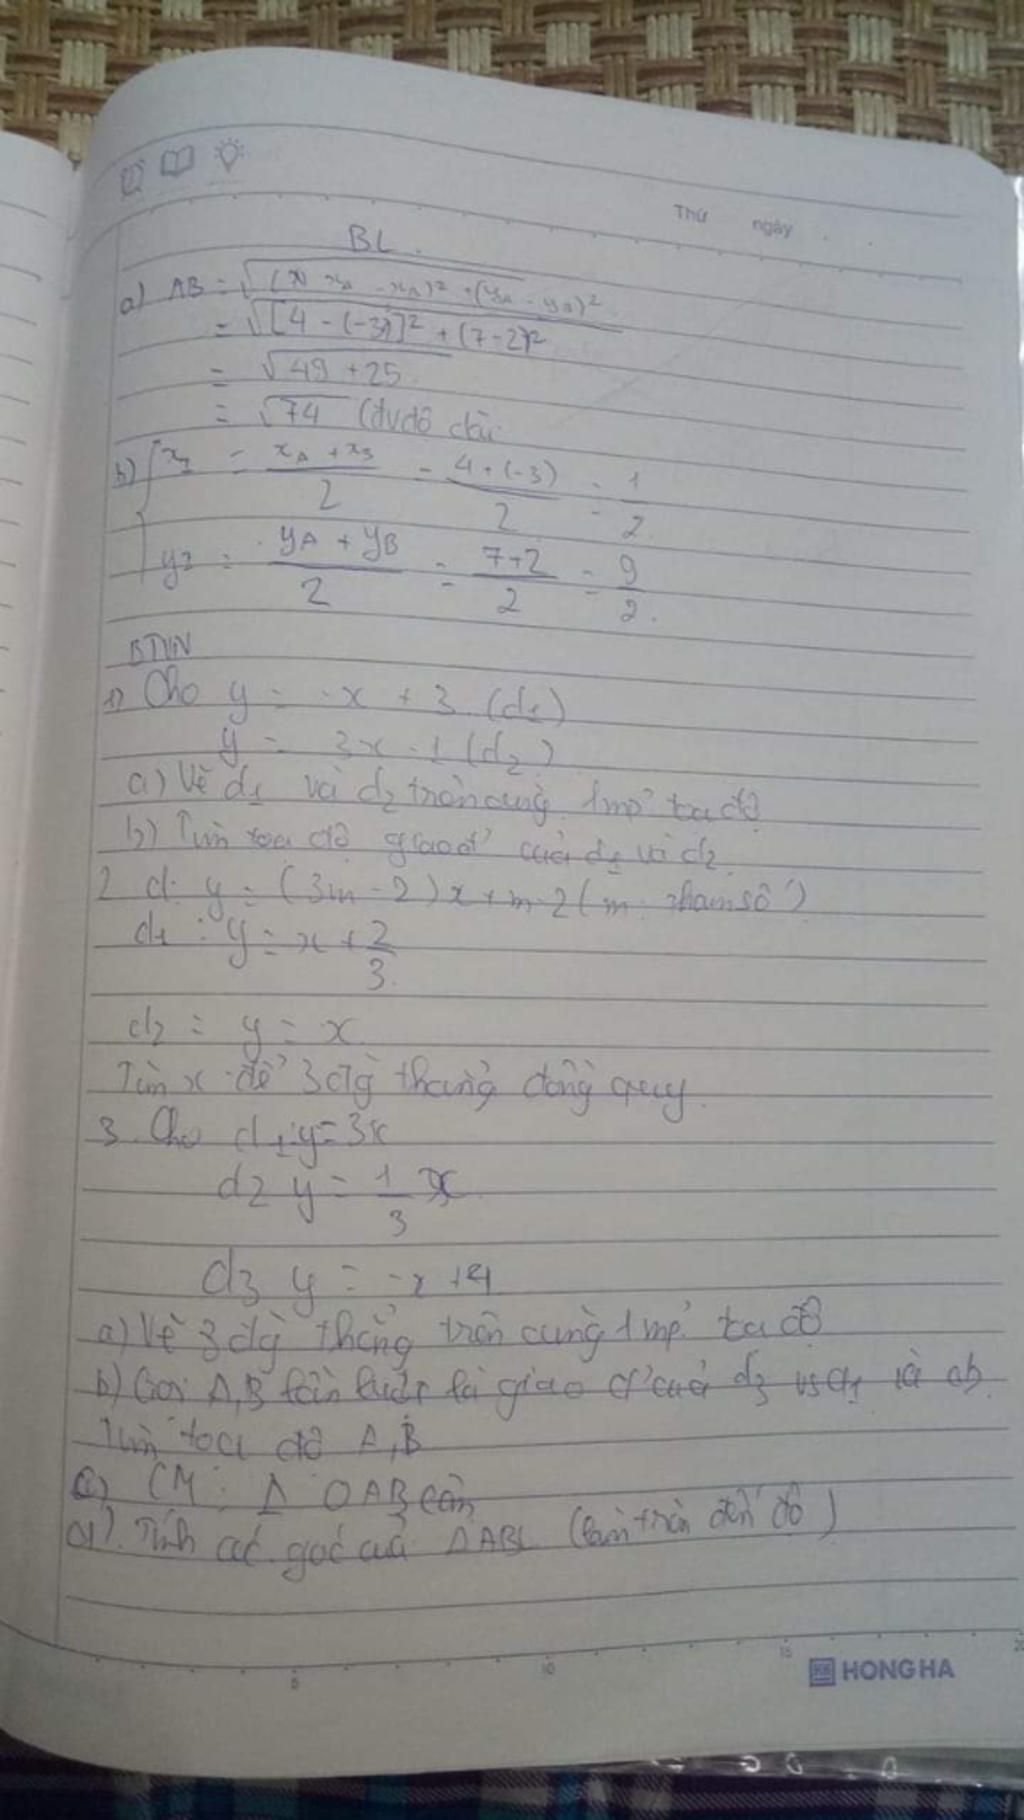 Thứ ngày
BL.
a) AB = √(x xA - xA)² + (yA - yB)²
= √[4 - (-3)]² + (7-2)²
= √49 + 25
= √74 (đvđộ dài
b) { xI = xA + xB / 2 = 4 + (-3) / 2 = 1/2.
yI = yA + yB / 2 = 7+2 / 2 = 9/2.
BTVN
1) Cho y = -x + 3 (d1)
y = 3x - 1 (d2)
a) Vẽ d1 và d2 trên cùng 1mp' tọa độ
b) Tìm tọa độ giao đ' của d1 và d2.
2 d: y = (3m - 2)x + m-2 (m: tham số)
d1: y = x + 2/3.
d2 = y = x
Tìm x để 3 đg thẳng đồng quy.
3. Cho d1: y = 3x
d2 y = 1/3 x
d3 y = -x + 4
a) Vẽ 3 đg thẳng trên cùng 1 mp' tọa độ
b) Gọi A, B lần lượt là giao đ' của d3 vs d1 và d2.
Tìm tọa độ A, B
c) CM: Δ OAB cân
d) Tính các góc của Δ (làm tròn đến độ)
5 10 15 20
HONG HA